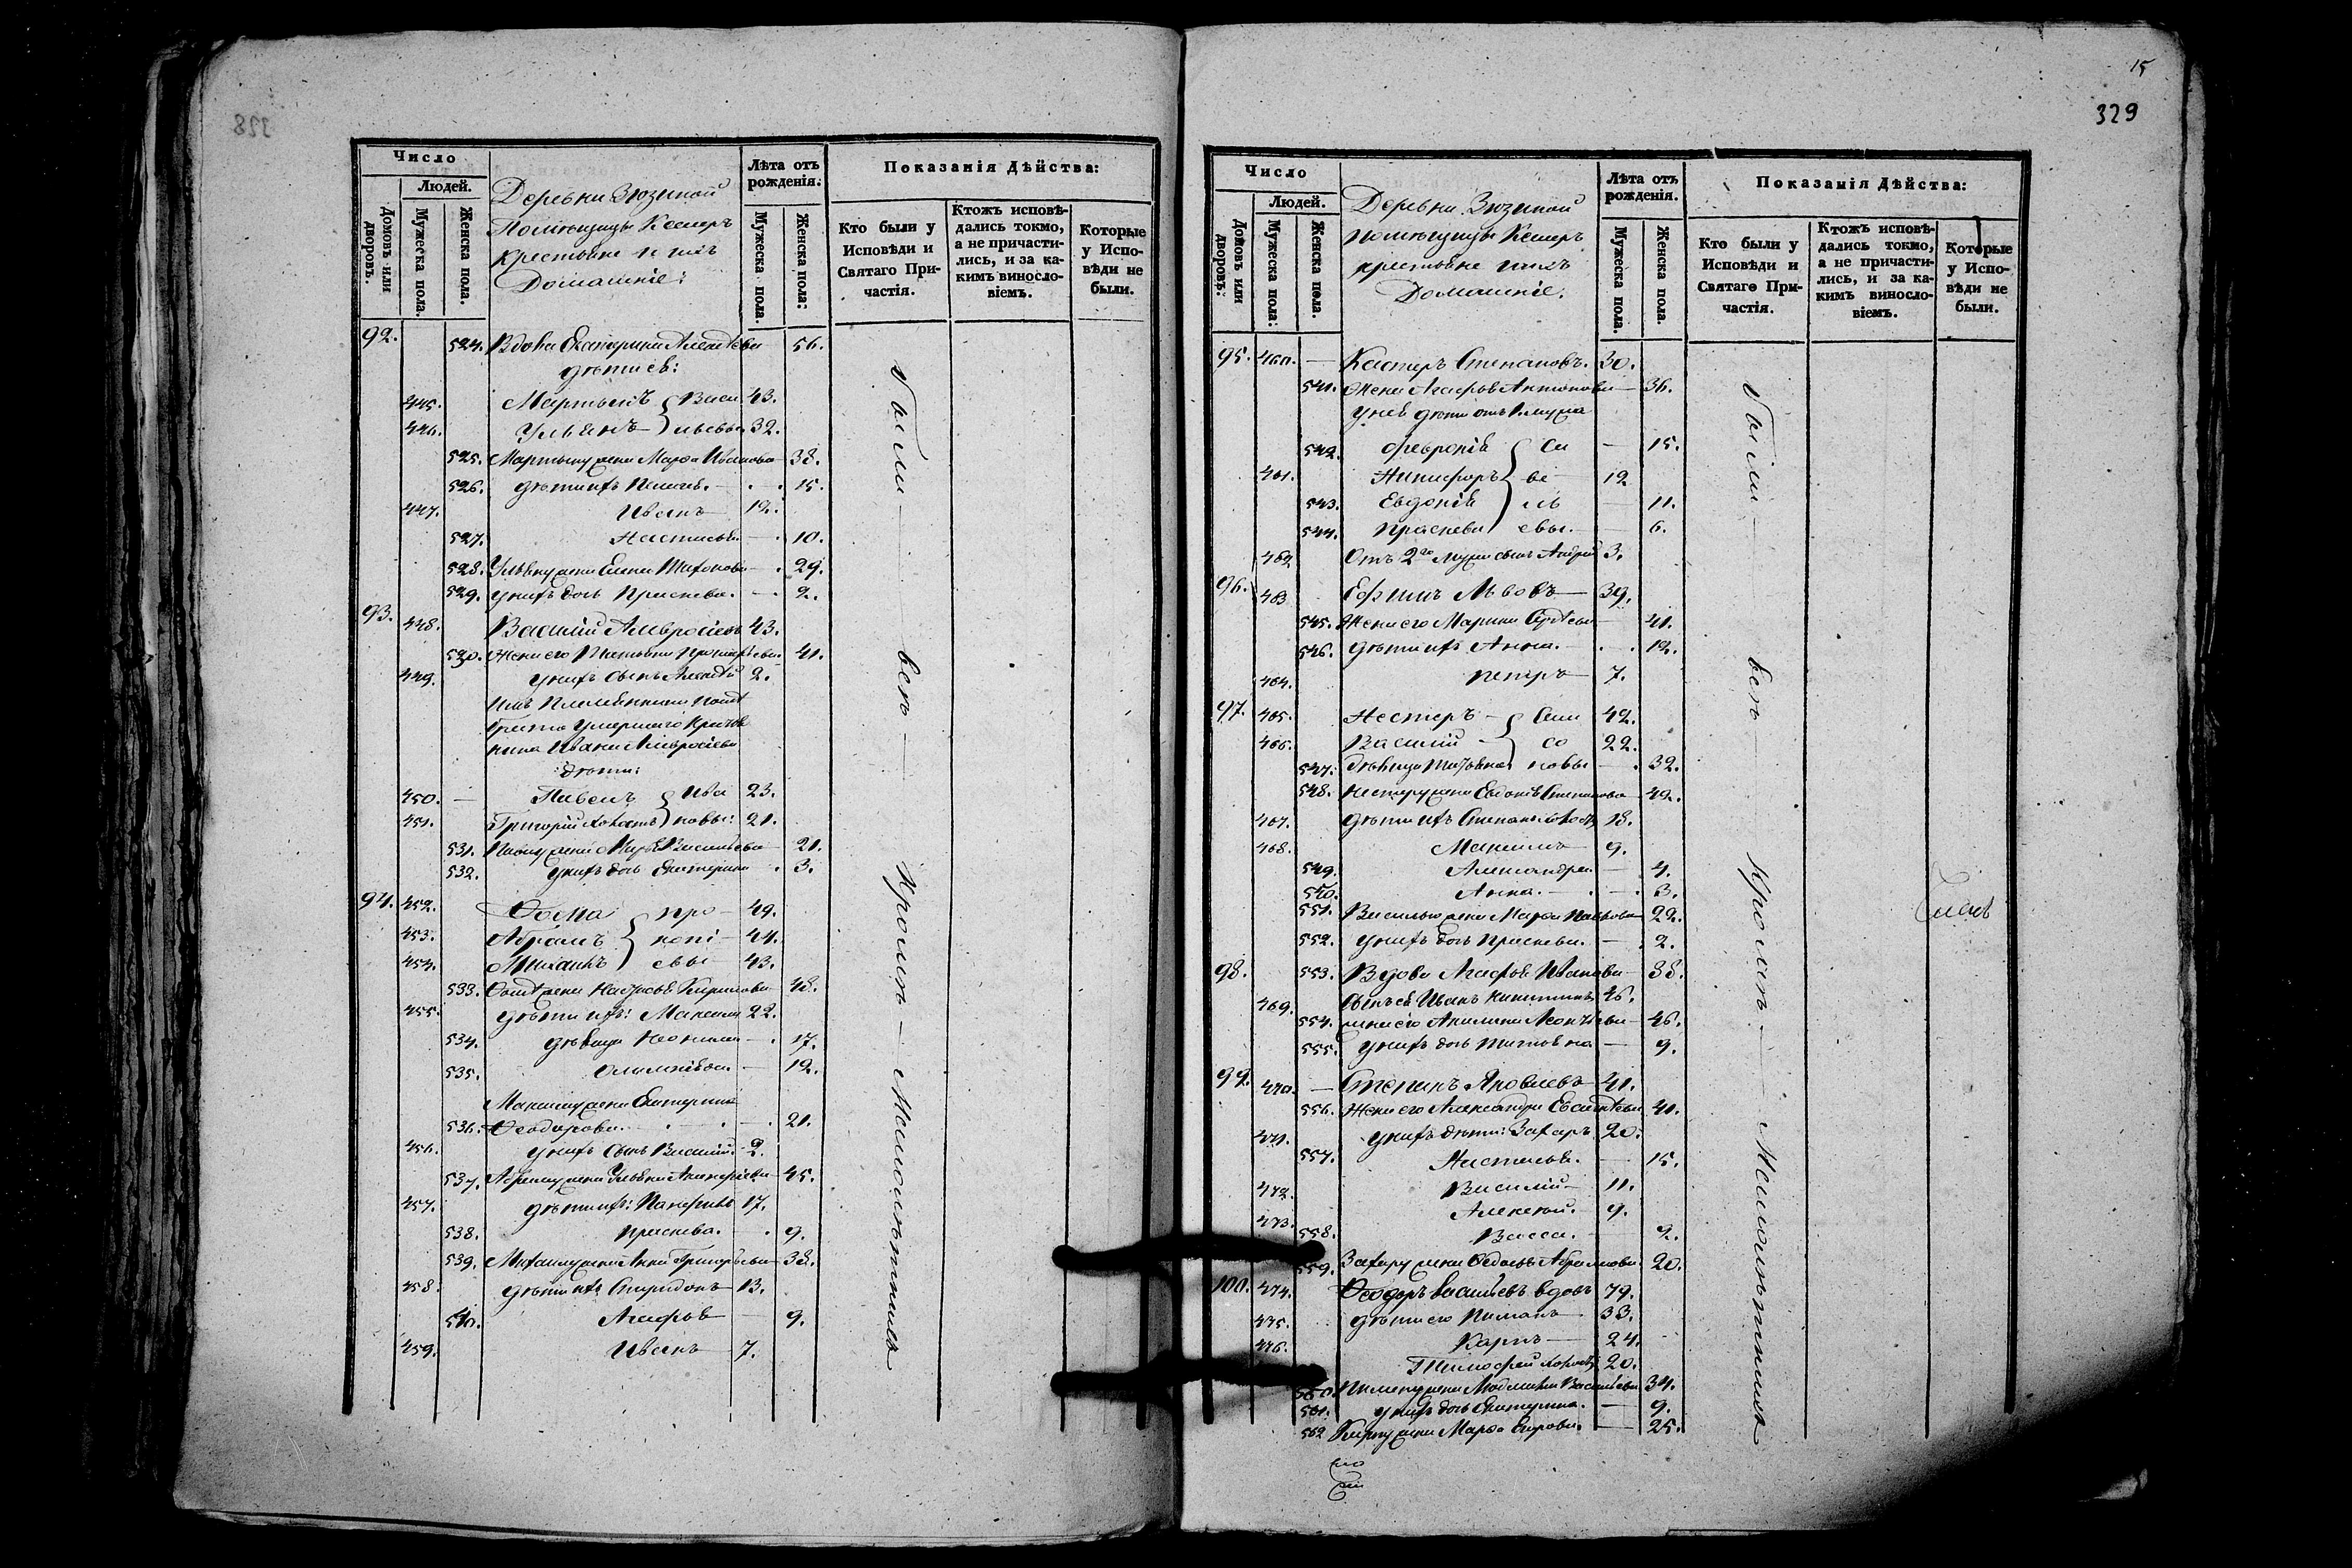 328
Число
Людей.
Домовъ или дворовъ.
Мужеска пола.
Женска пола.
Деревни Зюзиной
Помѣщицы
крестьяне и ихъ
Домашніе:
Лѣта отъ рожденія:
Мужеска пола.
Женска пола:
Показанія Дѣйства:
Кто были у Исповѣди и Святаго Причастія.
Ктожъ исповѣдались токмо, а не причастились, и за какимъ винословіемъ.
Которые у Исповѣди не были.
92. 524. Вдова Екатерина Алексѣева 56.
дѣти ея:
445. Мартынъ Васи 43.
446. Ульянъ льевы 32.
525. Мартына жена Марѳа Иванова 38.
526. дѣти ихъ 15.
447. Иванъ 12.
527. Настасья 10.
528. жена Елена 29.
529. у нихъ дочь Прасковья. 2.
93. 448. Василій Амвросіевъ 43.
530. Жена его Татьяна 41.
449. у нихъ сынъ Алексѣй 2.
брата умершаго
Ивана Амвросіева
дѣти:
450. Павелъ Ива 23.
451. Григорій холостъ новы: 21.
531. Павлу жена Васильева 21.
532. у нихъ дочь Екатерина 3.
94. 452. Ѳома про 49.
453. Абрамъ копі 44.
454. Михаилъ евы 43.
533. Ѳомѣ жена Настасья Кирилова 48.
455. дѣти ихъ: Максимъ 22.
534. дѣвица Неонила 17.
535. Олимпіада 12.
Максиму жена Екатерина
536. Ѳеодорова. 21.
456. у нихъ сынъ Василій. 2.
537. Абраму жена Ульяна 45.
457. дѣти ихъ: Панфилъ 17.
538. Прасковья. 9.
539. Михаилу жена Анна Григорьева 38.
458. дѣти ихъ Спиридонъ 13.
540. Агафья 9.
459. Иванъ 7.
были всѣ Кромѣ Малолѣтнихъ
15
329
Число
Людей.
Домовъ или дворовъ:
Мужеска пола:
Женска пола.
Деревни Зюзиной
помѣщицы
крестьяне и ихъ
Домашніе.
Лѣта отъ рожденія.
Мужеска пола.
Женска пола.
Показанія Дѣйства:
Кто были у Исповѣди и Святаго Причастія.
Ктожъ исповѣдались токмо, а не причастились, и за какимъ винословіемъ.
Которые у Исповѣди не были.
95. 460. Степановъ. 30.
541. Жена Агафья Антонова 36.
у нея дѣти отъ 1 мужа
542. Февронія Са 15.
461. Никифоръ ве 12
543. Евдокія ль 11.
544. Прасковья евы. 6.
462 Отъ 2го мужа сынъ Андрей 3.
96. 463 Ефимъ Львовъ 39.
545. Жена его Марина 41.
546. дѣти ихъ Анна. 12.
464. Петръ 7.
97. 465. Нестеръ Сам 42.
466. Василій со 22.
547. дѣвица Татьяна новы 32.
548. Нестеру жена Евдокія Степанова 42.
467. дѣти ихъ Степанъ холостъ 18.
468. Максимъ 9.
549. Александра 4.
550. Анна. 3.
551. Василью жена Марѳа Павлова 22.
552. у нихъ дочь Прасковья. 2.
98. 553. Вдова Агафья Иванова 88.
469. Сынъ ея Иванъ Никитинъ 46.
554. жена его Акилина Леонтьева 46.
555. у нихъ дочь Татьяна 9.
99. 470. Степанъ Яковлевъ 41.
556. Жена его Александра 41.
471. у нихъ дѣти: Захаръ 20.
557. Настасья. 15.
472. Василій 11.
473. Алексѣй. 9.
558. Васса. 2.
559. Захару жена Ѳедосья Абрамова 20.
100. 474. Ѳеодоръ Васильевъ вдовъ 79.
475. дѣти его Пиманъ 33.
476. Карпъ 24.
Тимофей холостъ 20.
560. Пимену жена Васильева 34.
561. у нихъ дочь Екатерина. 9.
562 Карпу жена Марѳа 25.
были всѣ Кромѣ Малолѣтнихъ